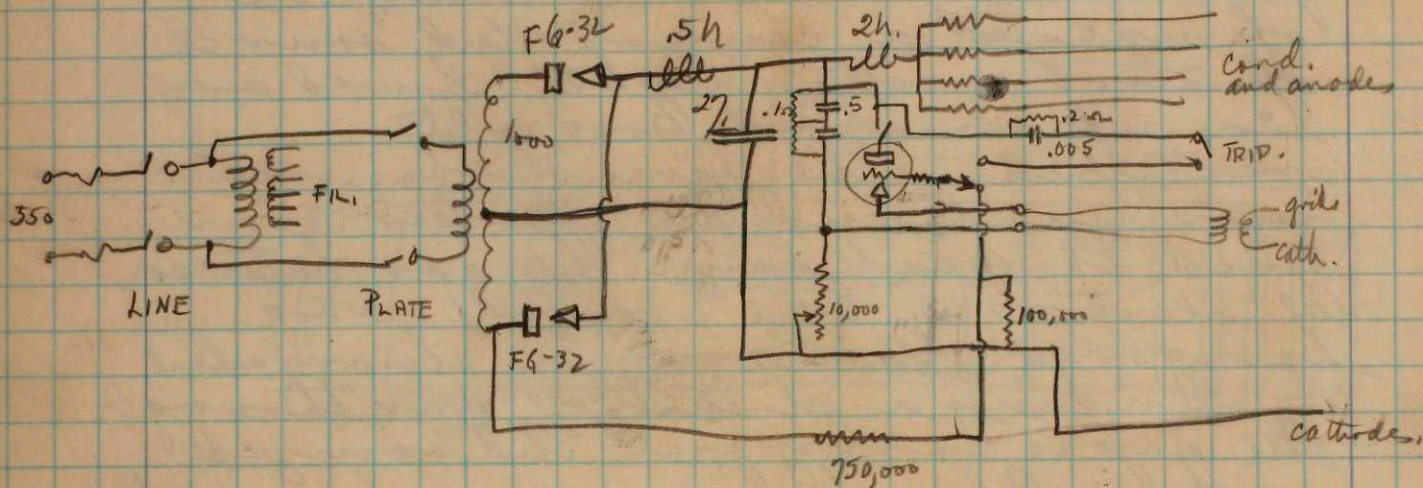 FG-32
.5h
2h.
cond.
and anodes
1000
.5
.005
TRIP.
550
FIL.
grids
cath.
LINE
PLATE
10,000
100,000
FG-32
cathodes.
750,000